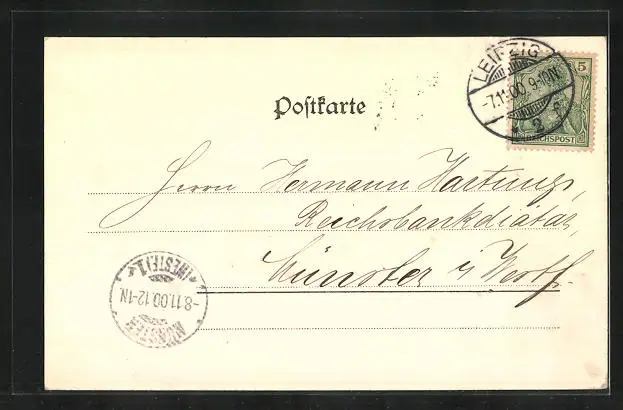 Postkarte
LEIPZIG
-7.11.00 9-10N.
* 2 e
5
REICHSPOST
Herrn Hermann Hartung,
Reichsbankdiätar,
Münster i/Westf.
MÜNSTER
-8.11.00.12-1N.
(WESTF.) 1 *